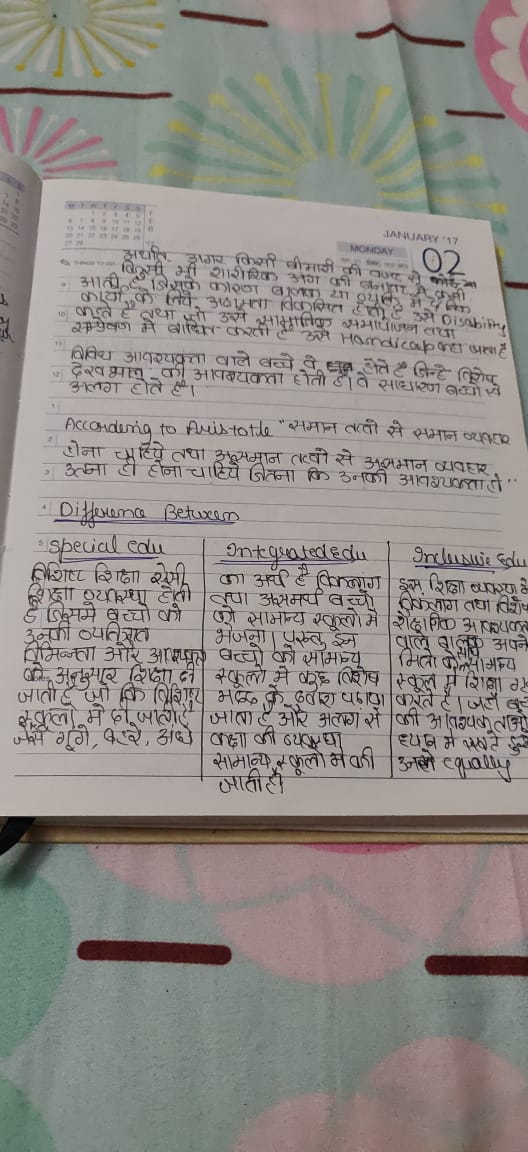 JANUARY '17
MONDAY
02
अर्थात- अगर किसी बीमारी की वजह से
किसी भी शारीरिक अंग की बनावट में कमी
आती है जिसके कारण बालक या व्यक्ति में
कार्यों को लिये अक्षमता विकसित होती है उसे Disability
कहते है तथा जो उसे सामाजिक समायोजन तथा
में बाधित करती है उसे Handicap कहा जाता है
विविध आवश्यकता वाले बच्चे वे होते है जिन्हे विशेष
देखभाल की आवश्यकता होती है। वे साधारण बच्चो से
अलग होते है।
Accordering to Aristotle "समान तत्वो से समान व्यवहार
होना चाहिये तथा असमान तत्वो से असमान व्यवहार
उतना ही होना चाहिये जितना कि उनकी आवश्यकता हो"
Difference Between
Special edu
विशिष्ट शिक्षा ऐसी
शिक्षा व्यवस्था होती
है जिसमे बच्चो को
उनकी व्यक्तिगत
विभिन्नता और आवश्यकता
के अनुसार शिक्षा दी
जाती है जो कि विशिष्ट
स्कूलो में दी जाती है
जैसे गूंगे, बहरे, अंधे
Integrated Edu
का अर्थ है विकलांग
तथा असमर्थ बच्चो
को सामान्य स्कूलो में
भेजना। परन्तु इन
बच्चो को सामान्य
स्कूलो में कुछ विशेष
मदद के द्वारा पढाया
जाता है और अलग से
कक्षा की व्यवस्था
सामान्य स्कूलो में की
जाती है।
Inclusive Edu
इस शिक्षा व्यवस्था
विकलांग तथा विशेष
शैक्षणिक आवश्यकता
वाले बालक अपने
सामान्य
स्कूल में शिक्षा
करते है।
की आवश्यकताओ
ध्यान में रखते हुए
उनको equally